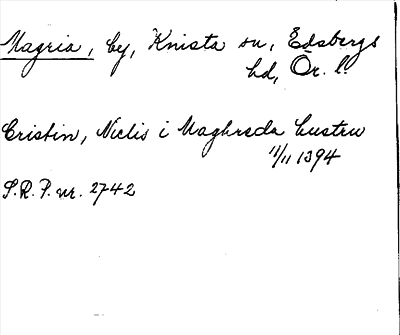 Magria, by, Knista sn, Edsbergs
hd, Ör. l.
Cristin, Niclis i Maghreda hustru
11/11 1394
S.R.P. nr. 2742